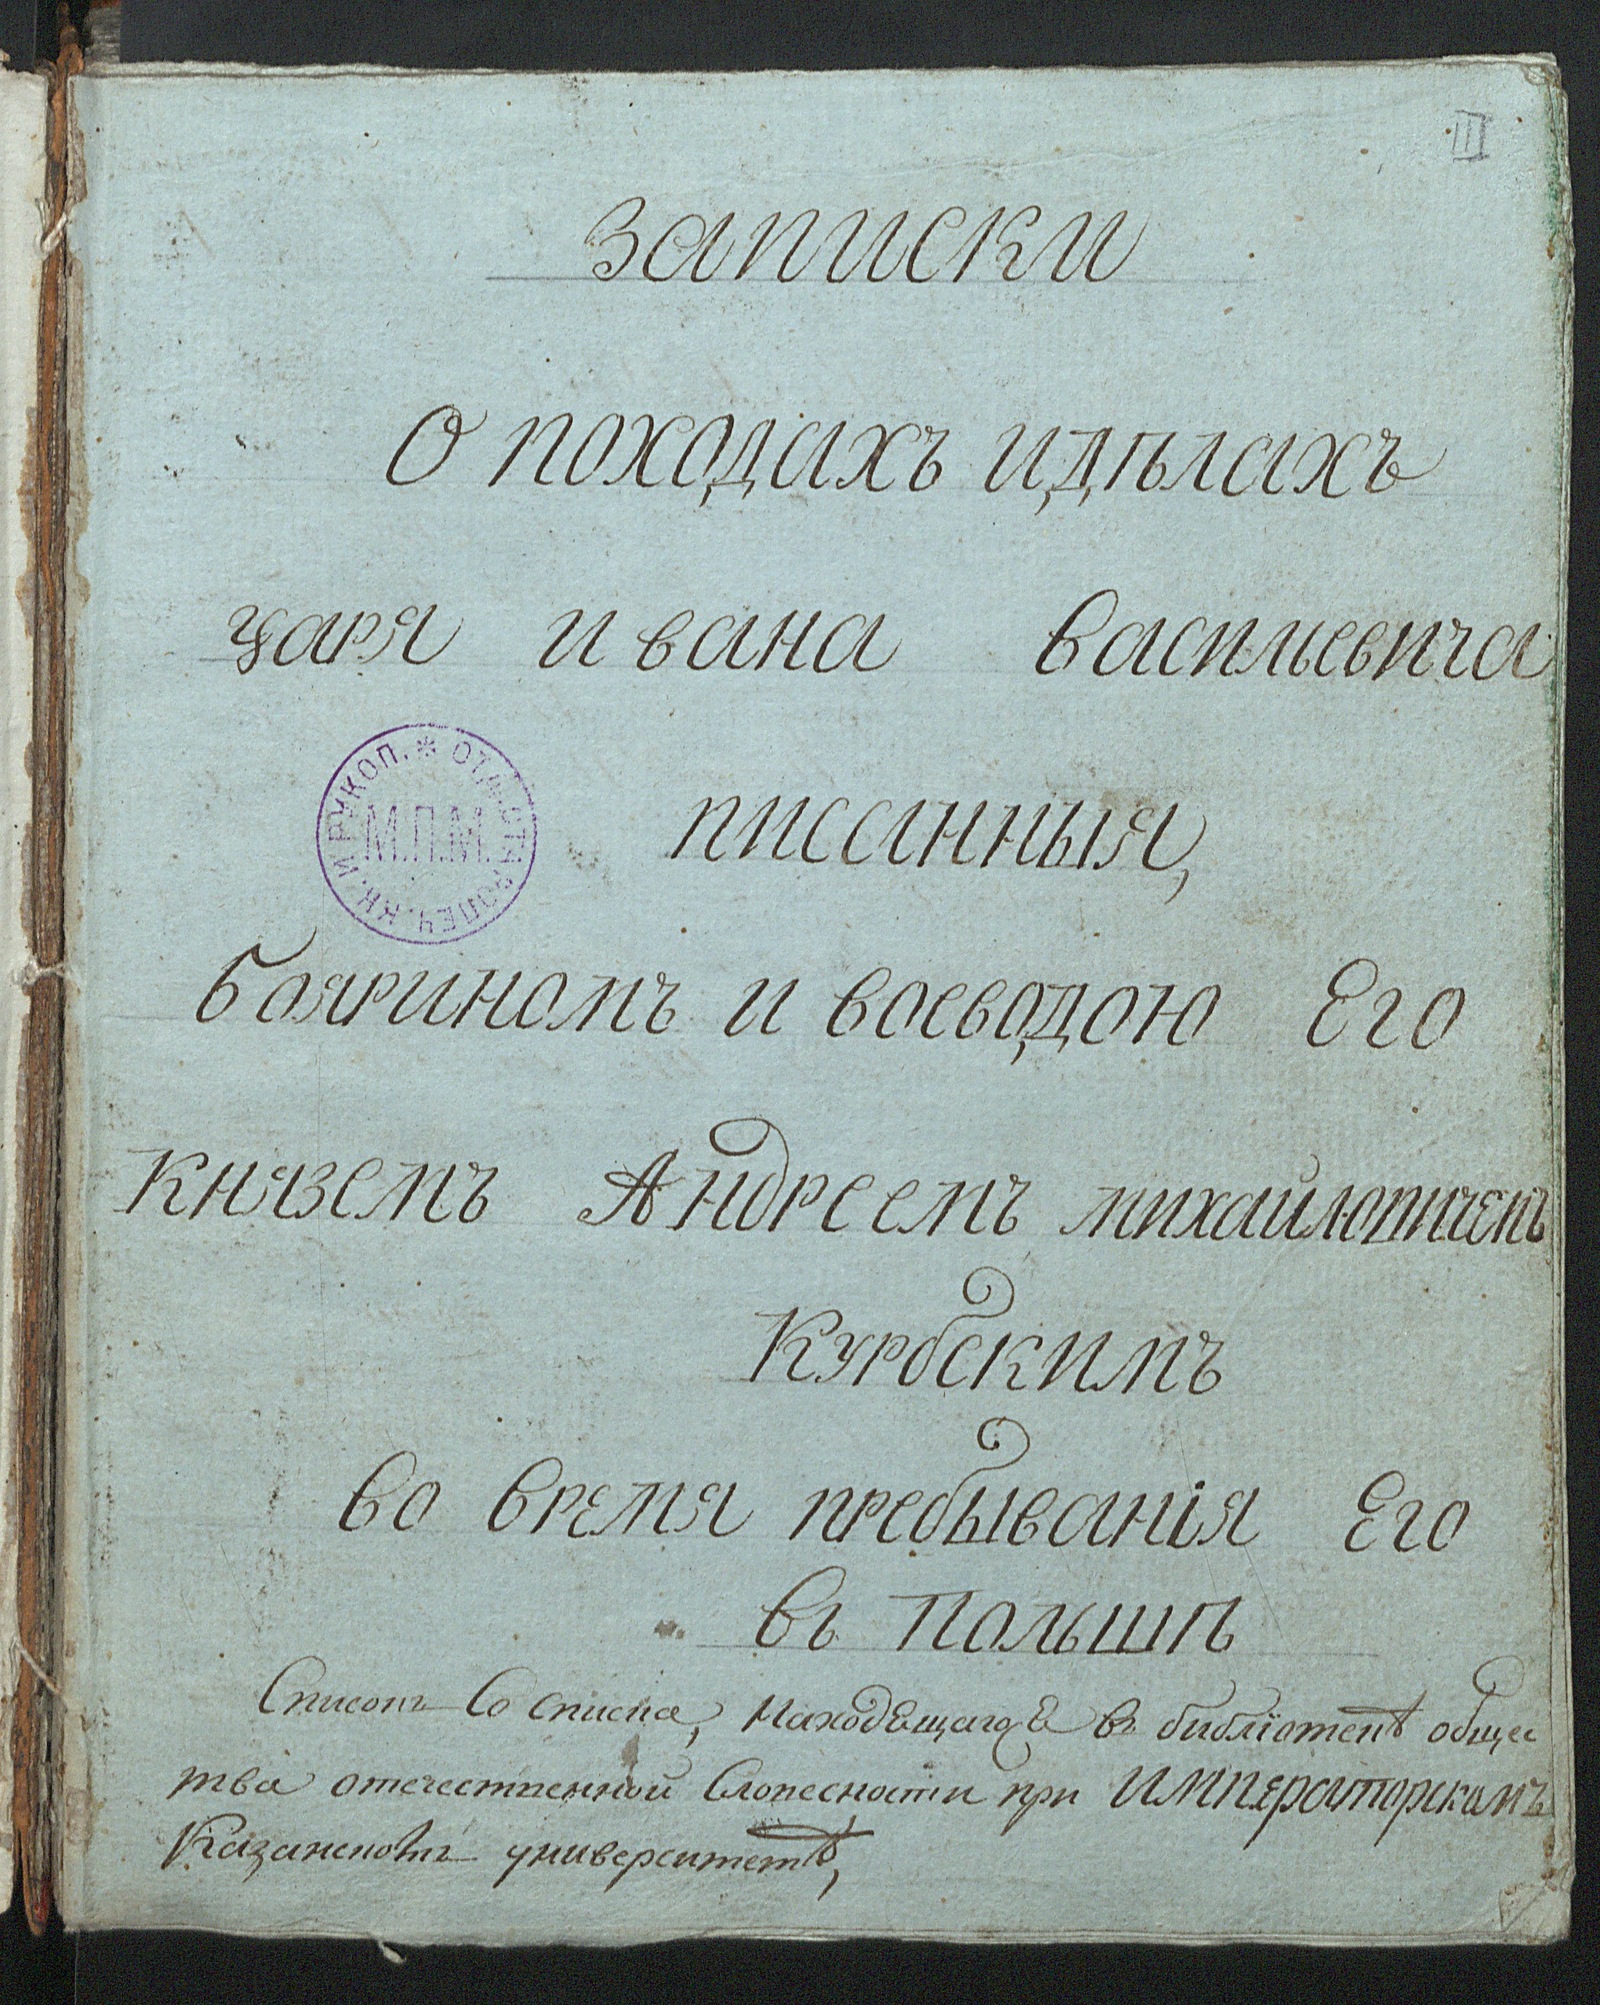 III
Записки
О походахъ и дѣлахъ
царя ивана Васильевича
писанныя,
Бояриномъ и воеводою Его
Княземъ Андреемъ михайловичемъ
Курбскимъ
во время пребыванія Его
въ Польшѣ
Списокъ Со списка, Находящагося въ библіотекѣ общес
тва отечественной Словесности при Императорскомъ
Казанскомъ университетѣ,
ОТД. СТАРОПЕЧ. КН. И РУКОП.
М.П.М.